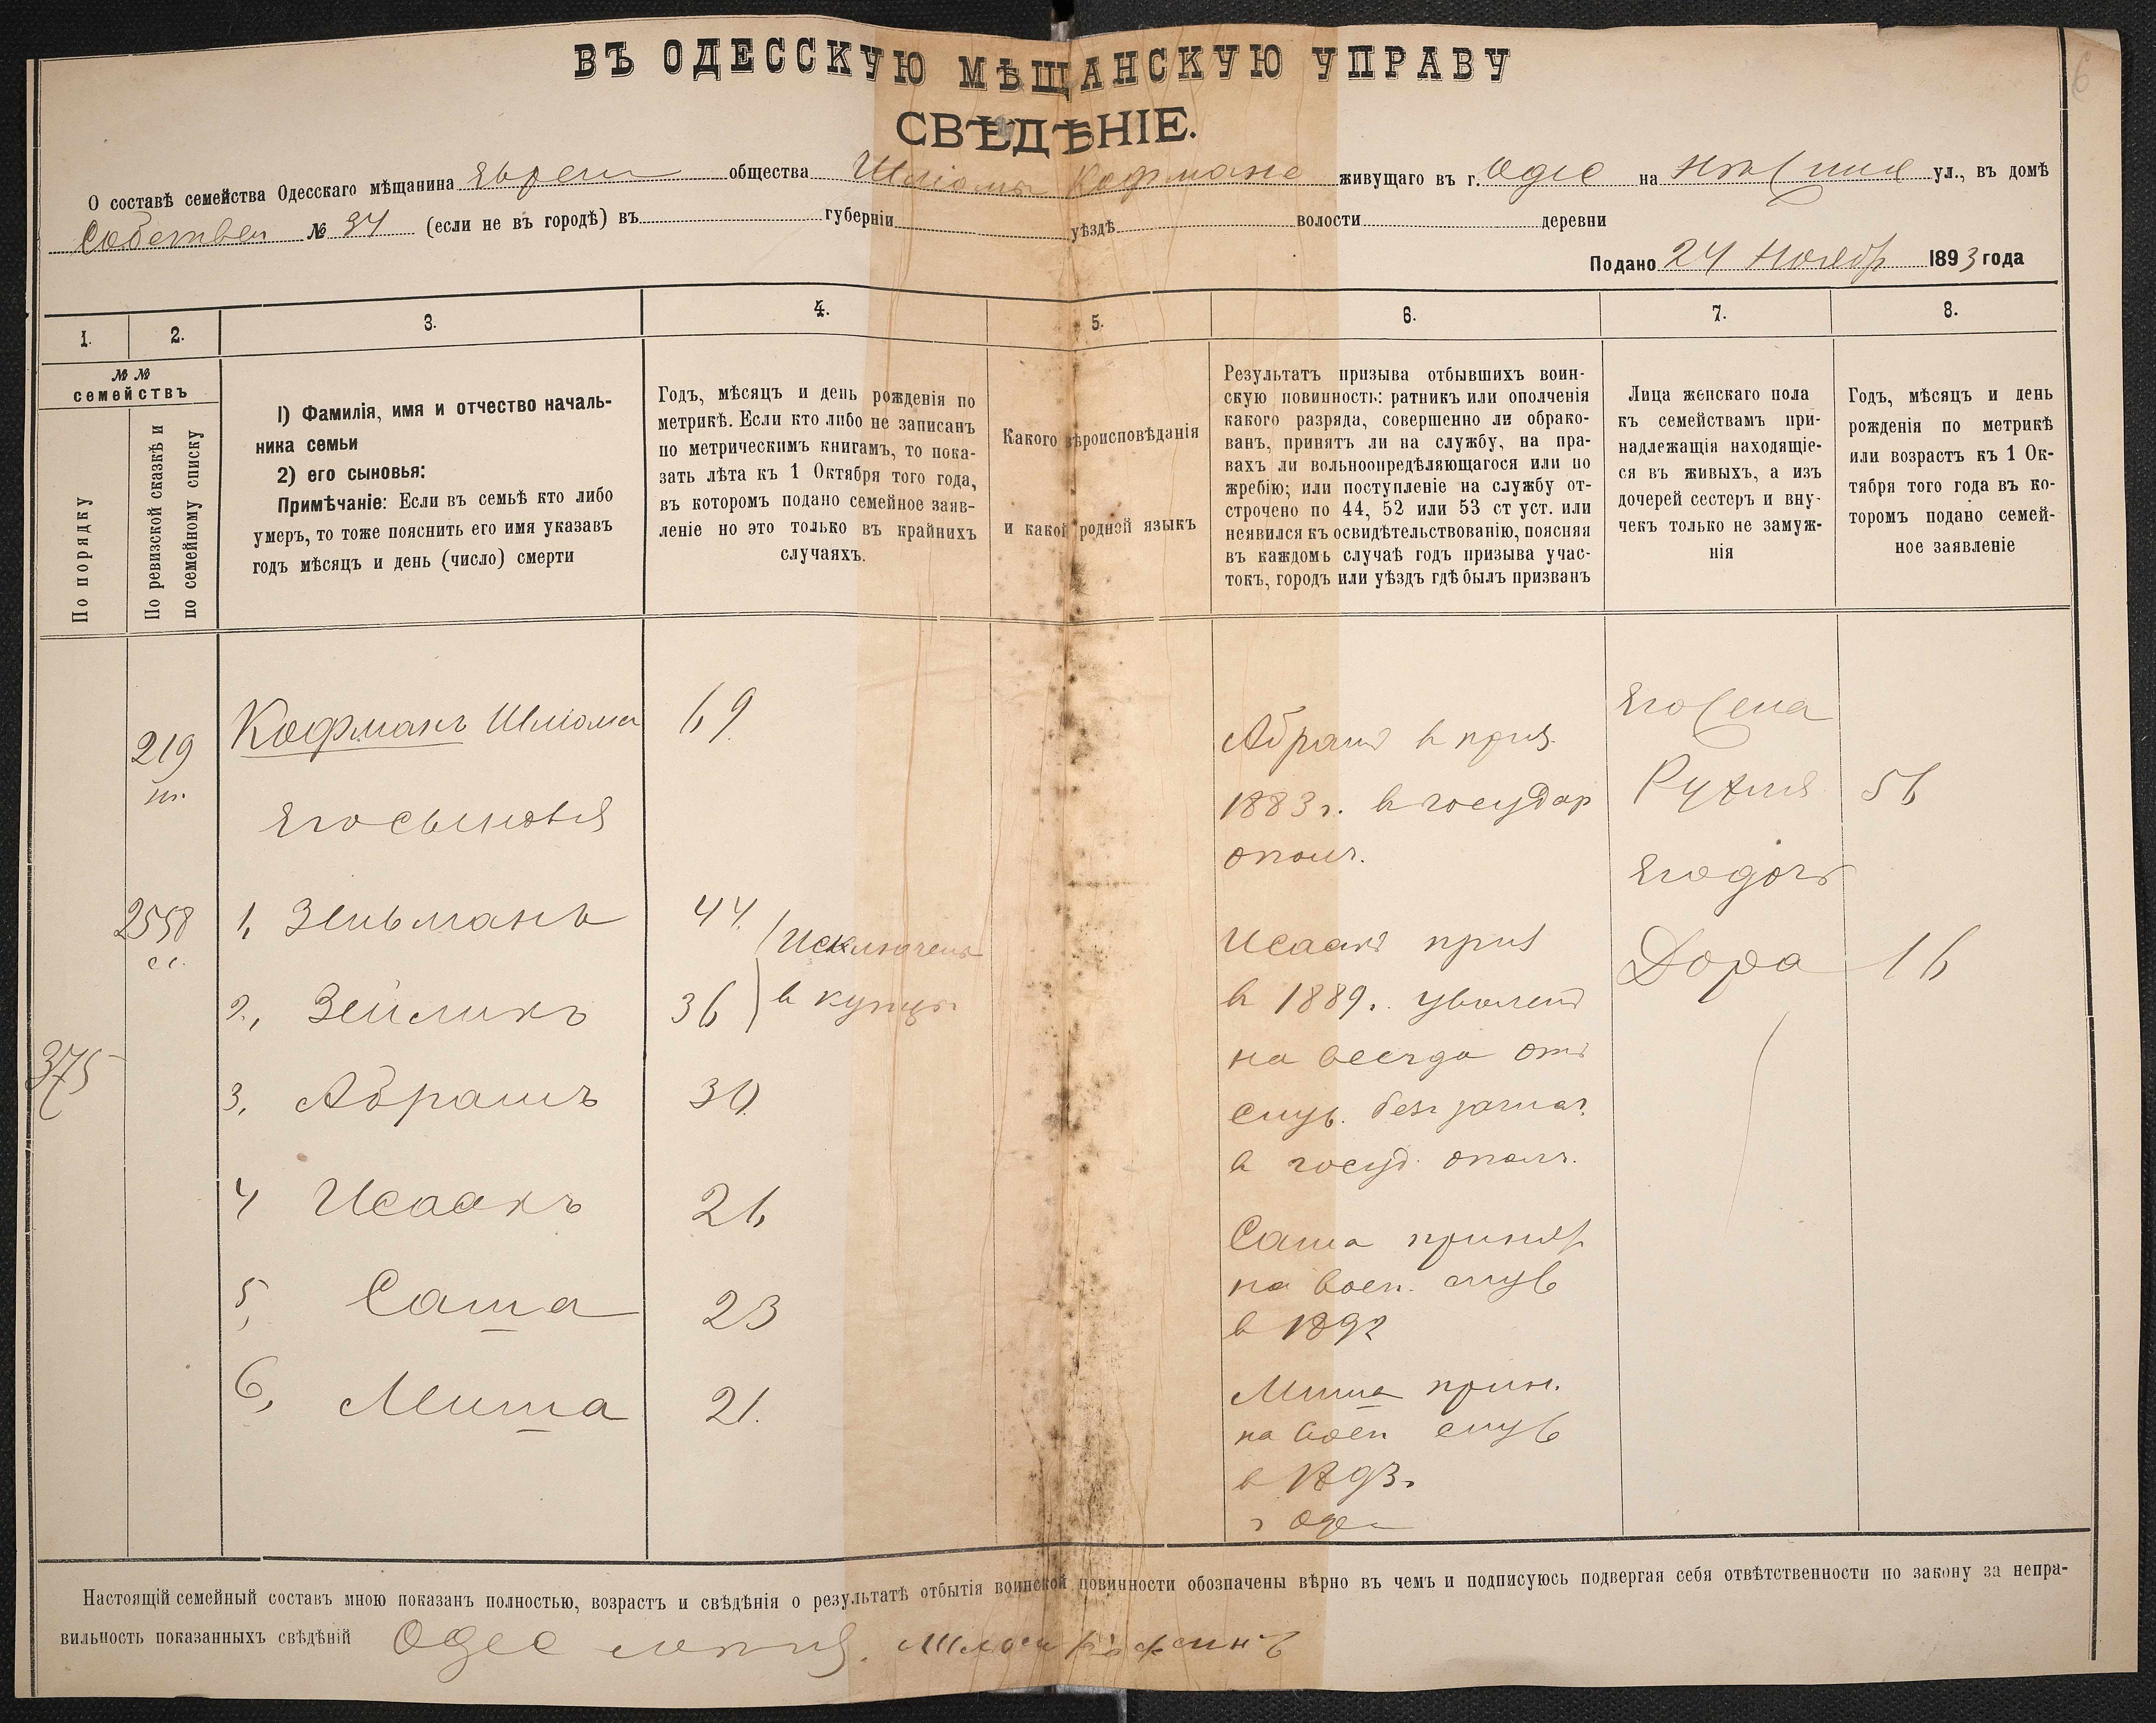 6
ВЪ ОДЕССКУЮ МѢЩАНСКУЮ УПРАВУ
СВѢДѢНІЕ.
О составѣ семейства Одесскаго мѣщанина общества Шліомы Кофмана живущаго въ г. Одес на ул., въ домѣ
Собствен № 34 (если не въ городѣ) въ губерніи уѣздѣ волости деревни
Подано 24 Ноябр 1893 года
1. 2. 3. 4. 5. 6. 7. 8.
№ №
семействъ
По порядку
По ревизской сказкѣ и
по семейному списку
1) Фамилія, имя и отчество началь-
ника семьи
2) его сыновья:
Примѣчаніе: Если въ семьѣ кто либо
умеръ, то тоже пояснить его имя указавъ
годъ мѣсяцъ и день (число) смерти
Годъ, мѣсяцъ и день рожденія по
метрикѣ. Если кто либо не записанъ
по метрическимъ книгамъ, то пока-
зать лѣта къ 1 Октября того года,
въ которомъ подано семейное заяв-
леніе но это только въ крайнихъ
случаяхъ.
Какого вѣроисповѣданія
и какой родной языкъ
Результатъ призыва отбывшихъ воин-
скую повинность: ратникъ или ополченія
какого разряда, совершенно ли обрако-
ванъ, принятъ ли на службу, на пра-
вахъ ли вольноопредѣляющагося или по
жребію; или поступленіе на службу от-
строчено по 44, 52 или 53 ст уст. или
неявился къ освидѣтельствованію, поясняя
въ каждомъ случаѣ годъ призыва учас-
токъ, городъ или уѣздъ гдѣ былъ призванъ
Лица женскаго пола
къ семействамъ при-
надлежащія находящіе-
ся въ живыхъ, а изъ
дочерей сестеръ и вну-
чекъ только не замуж-
нія
Годъ, мѣсяцъ и день
рожденія по метрикѣ
или возрастъ къ 1 Ок-
тября того года въ ко-
торомъ подано семей-
ное заявленіе
219
Кофманъ Шліома 69
Его сыновья
2558
1, Зельманъ 44
Исключены
2, Зейликъ 36 в купцы
375
3, Абрамъ 30
4 Исаакъ 26
5, Саша 23
6, Миша 21.
Абрамъ в приз
1883 г. в государ
ополч.
Исаакъ приз
в 1889 г. уволенъ
на всегда отъ
служ. безъ зачис.
в госуд. ополч.
Саша принят
на воен. служ
в 1892
Миша прин.
на воен служ
в 1893 г
г Одес
Его жена
Рухля 56
Его дочь
Дора 16
Настоящій семейный составъ мною показанъ полностью, возрастъ и свѣдѣнія о результатѣ отбытія воинской повинности обозначены вѣрно въ чемъ и подписуюсь подвергая себя отвѣтственности по закону за непра-
вильность показанныхъ свѣдѣній Одес